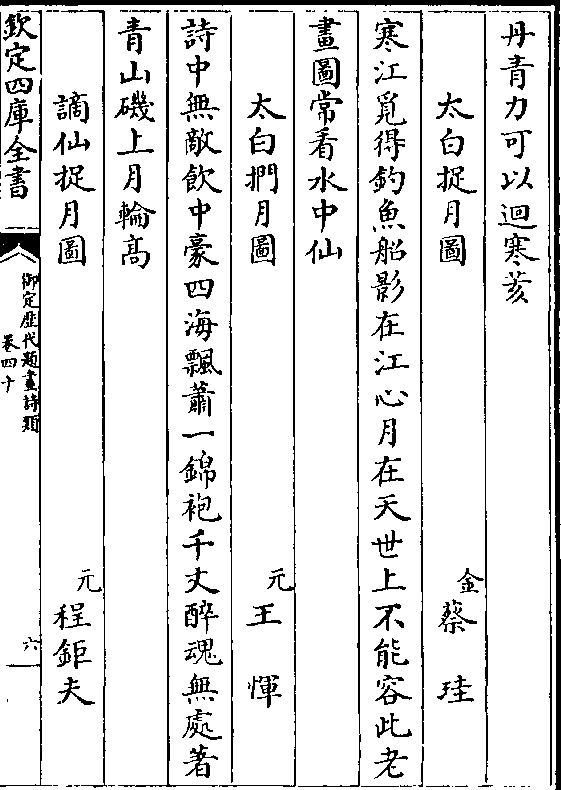 丹青力可以迴寒荄
太白捉月圖
金 蔡珪
寒江覓得釣魚船影在江心月在天世上不能容此老
畫圖常看水中仙
太白捫月圖
元 王惲
詩中無敵飲中豪四海飄蕭一錦袍千丈醉魂無處著
青山磯上月輪高
謫仙捉月圖
元 程鉅夫
欽定四庫全書
御定歴代題畫詩類
卷四十
六